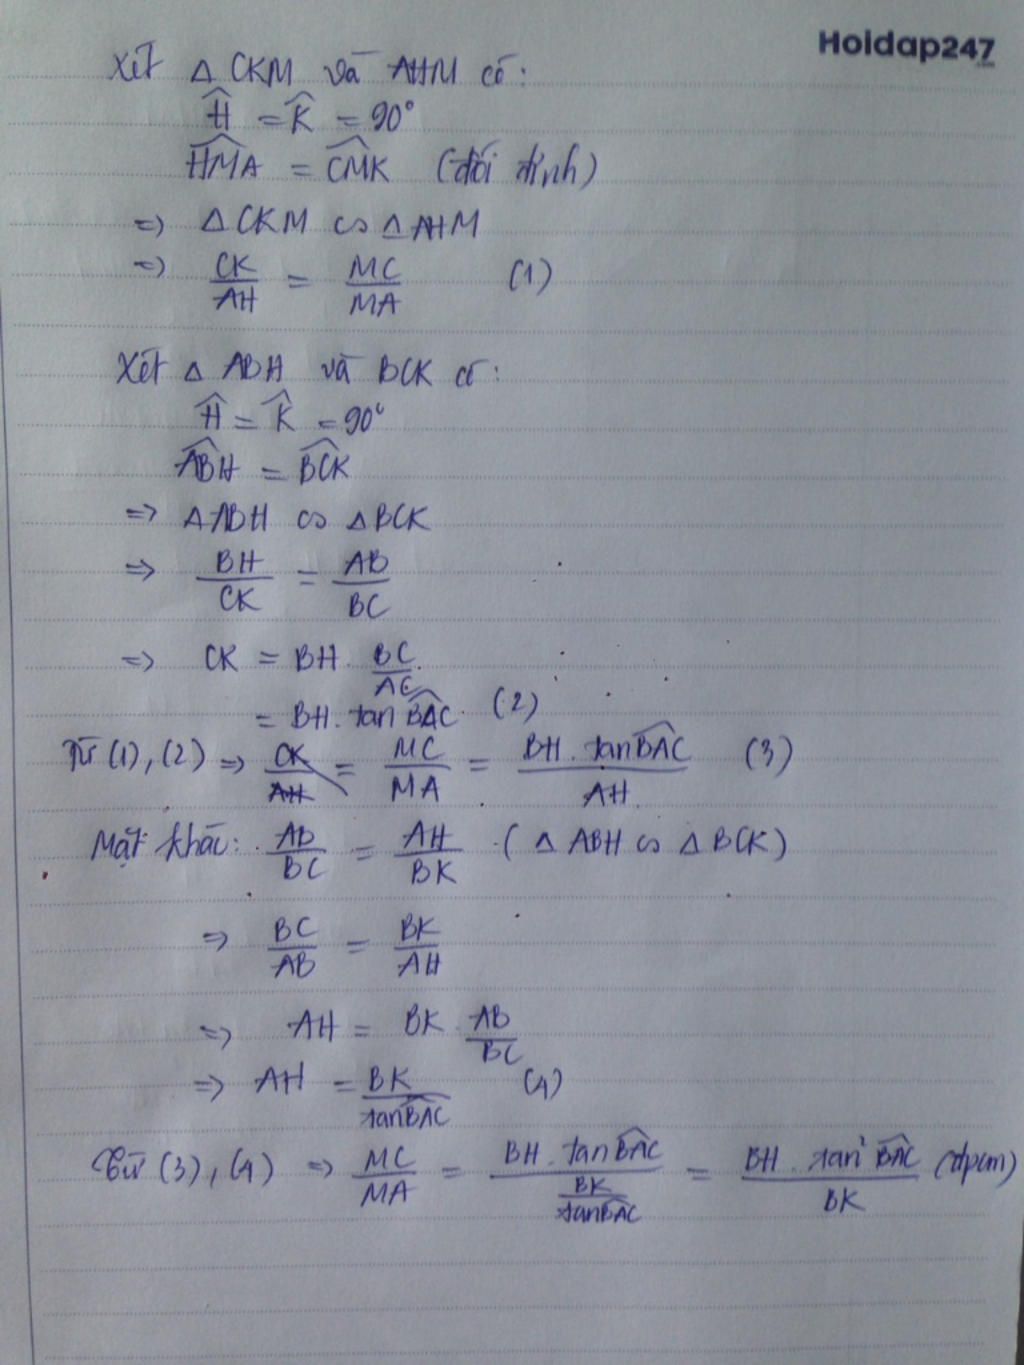 Hoidap247
.com
Xét △ CKM và AHM có:
Ĥ = K̂ = 90°
\widehat{HMA} = \widehat{CMK} (đối đỉnh)
=> △CKM ∽ △AHM
=> CK/AH = MC/MA (1)
Xét △ ABH và BCK có:
Ĥ = K̂ = 90°
\widehat{ABH} = \widehat{BCK}
=> △ABH ∽ △BCK
=> BH/CK = AB/BC
=> CK = BH. BC/AC
= BH. tan \widehat{BAC} (2)
Từ (1), (2) => CK/AH = MC/MA = BH. tan\widehat{BAC}/AH. (3)
Mặt khác: AB/BC = AH/BK (△ ABH ∽ △ BCK)
=> BC/AB = BK/AH
=> AH = BK. AB/BC
=> AH = BK/tan\widehat{BAC} (4)
Từ (3), (4) => MC/MA = BH. tan\widehat{BAC}/(BK/tan\widehat{BAC}) = BH. tan² \widehat{BAC}/BK (đpcm)